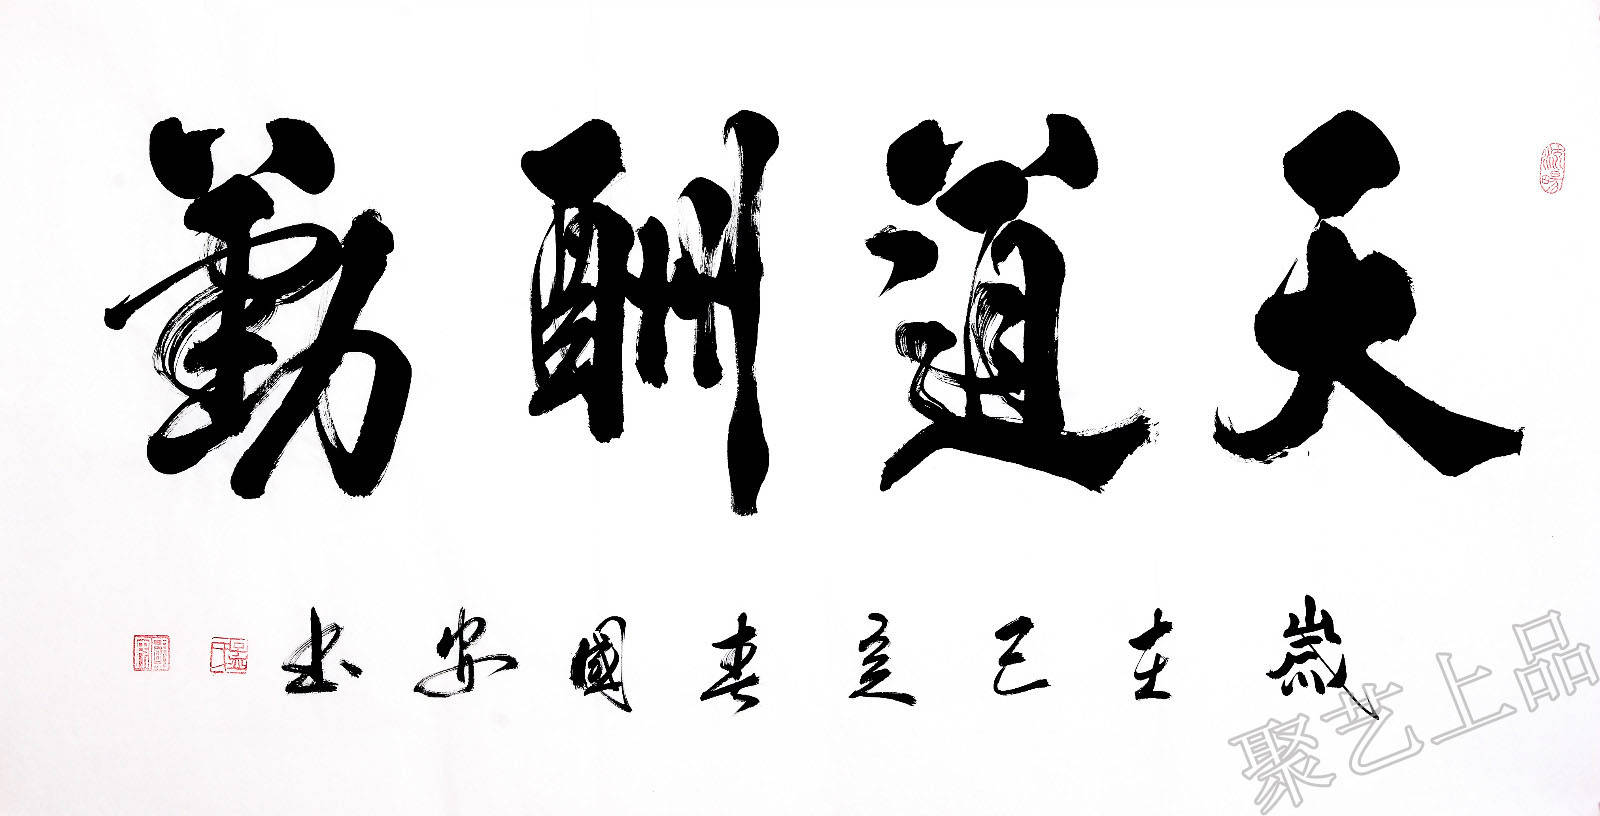 天道酬勤
歲在己亥春國安書
聚艺上品